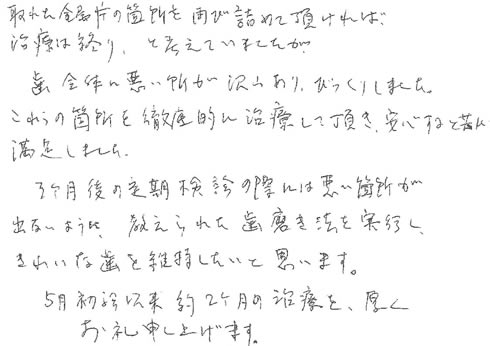 取れた金属片の箇所を再び詰めて頂ければ、
治療は終り、と考えていましたが、
歯全体に悪い所が沢山あり、びっくりしました。
これらの箇所を徹底的に治療して頂き、安心すると共に
満足しました。
3ヶ月後の定期検診の際には悪い箇所が
出ないように、教えられた歯磨き法を実行し、
きれいな歯を維持したいと思います。
5月初診以来約2ヶ月の治療を、厚く
お礼申し上げます。